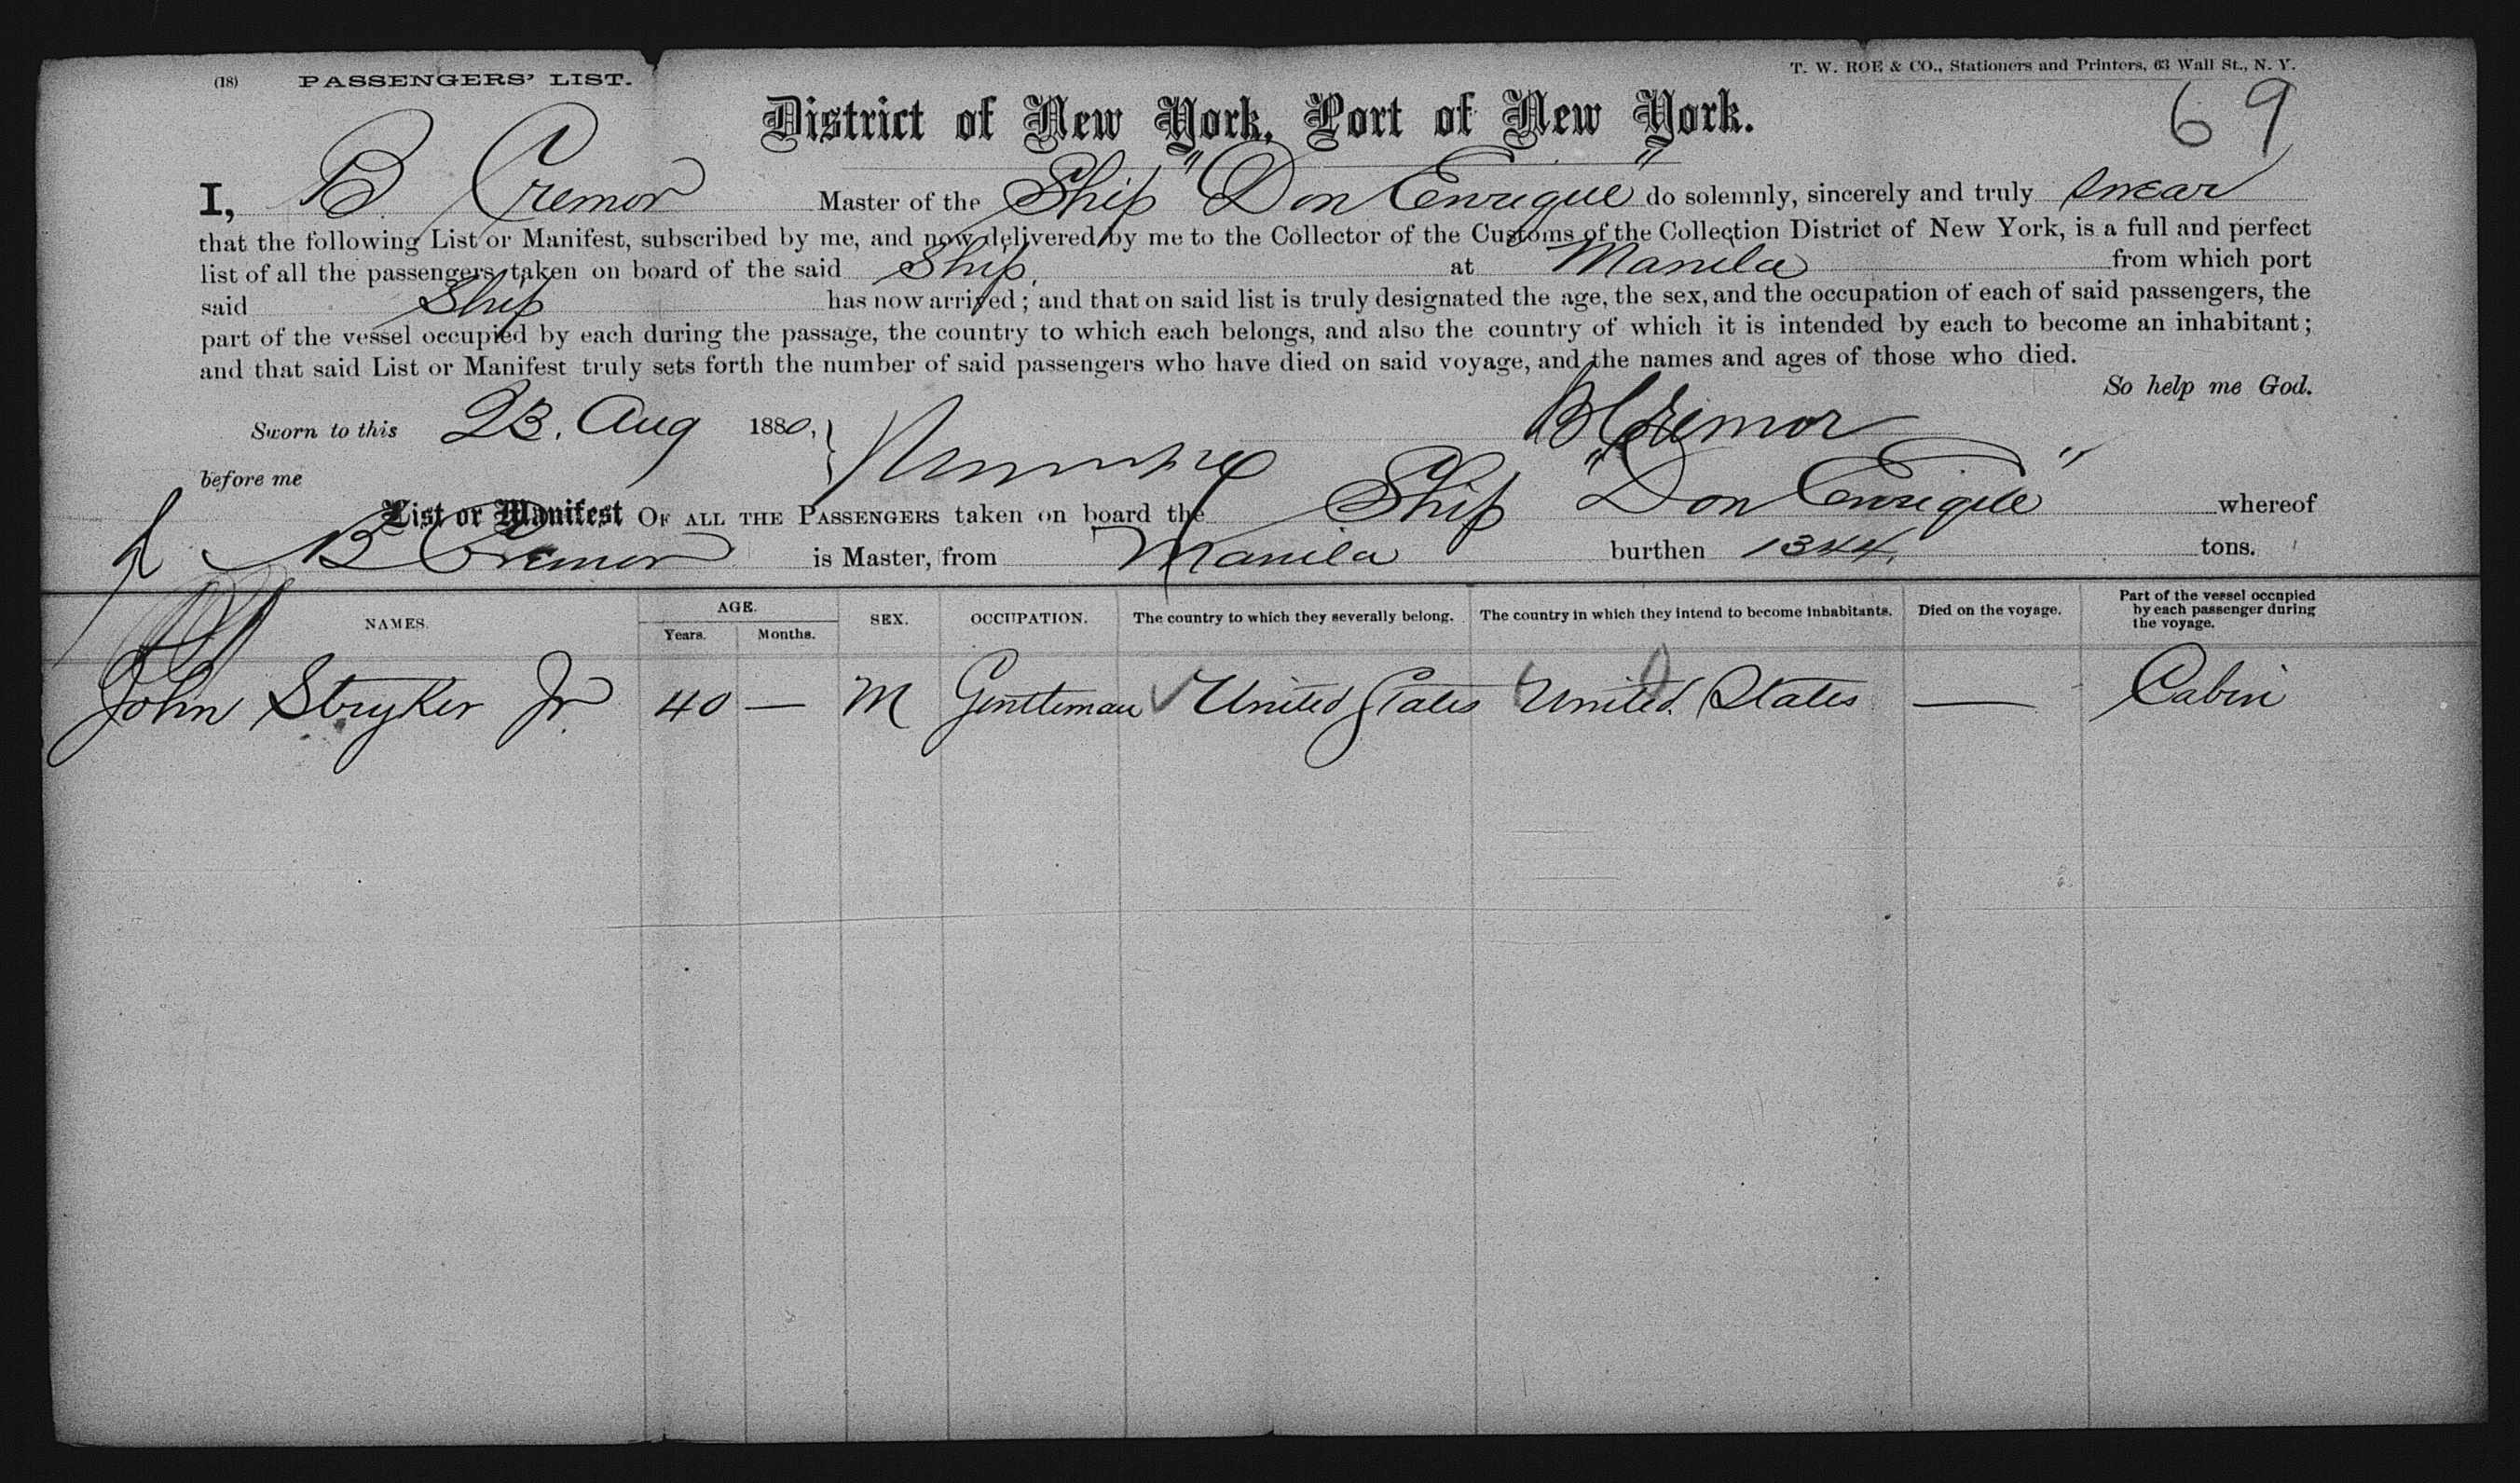 (18) PASSENGERS' LIST. T. W. ROE & CO., Stationers and Printers, 63 Wall St., N. Y.
69
District of New York, Port of New York.
I, B. Cremor Master of the Ship "Don Enrique" do solemnly, sincerely and truly swear
that the following List or Manifest, subscribed by me, and now delivered by me to the Collector of the Customs of the Collection District of New York, is a full and perfect
list of all the passengers taken on board of the said Ship, at Manila from which port
said Ship has now arrived; and that on said list is truly designated the age, the sex, and the occupation of each of said passengers, the
part of the vessel occupied by each during the passage, the country to which each belongs, and also the country of which it is intended by each to become an inhabitant;
and that said List or Manifest truly sets forth the number of said passengers who have died on said voyage, and the names and ages of those who died.
So help me God.
Sworn to this 23. Aug 1880, B Cremor
before me
List or Manifest OF ALL THE PASSENGERS taken on board the Ship "Don Enrique" whereof
B Cremor is Master, from Manila burthen 1344. tons.
NAMES. AGE. Years. Months. SEX. OCCUPATION. The country to which they severally belong. The country in which they intend to become inhabitants. Died on the voyage. Part of the vessel occupied by each passenger during the voyage.
John Stryker Jr 40 — M Gentleman United States United States — Cabin